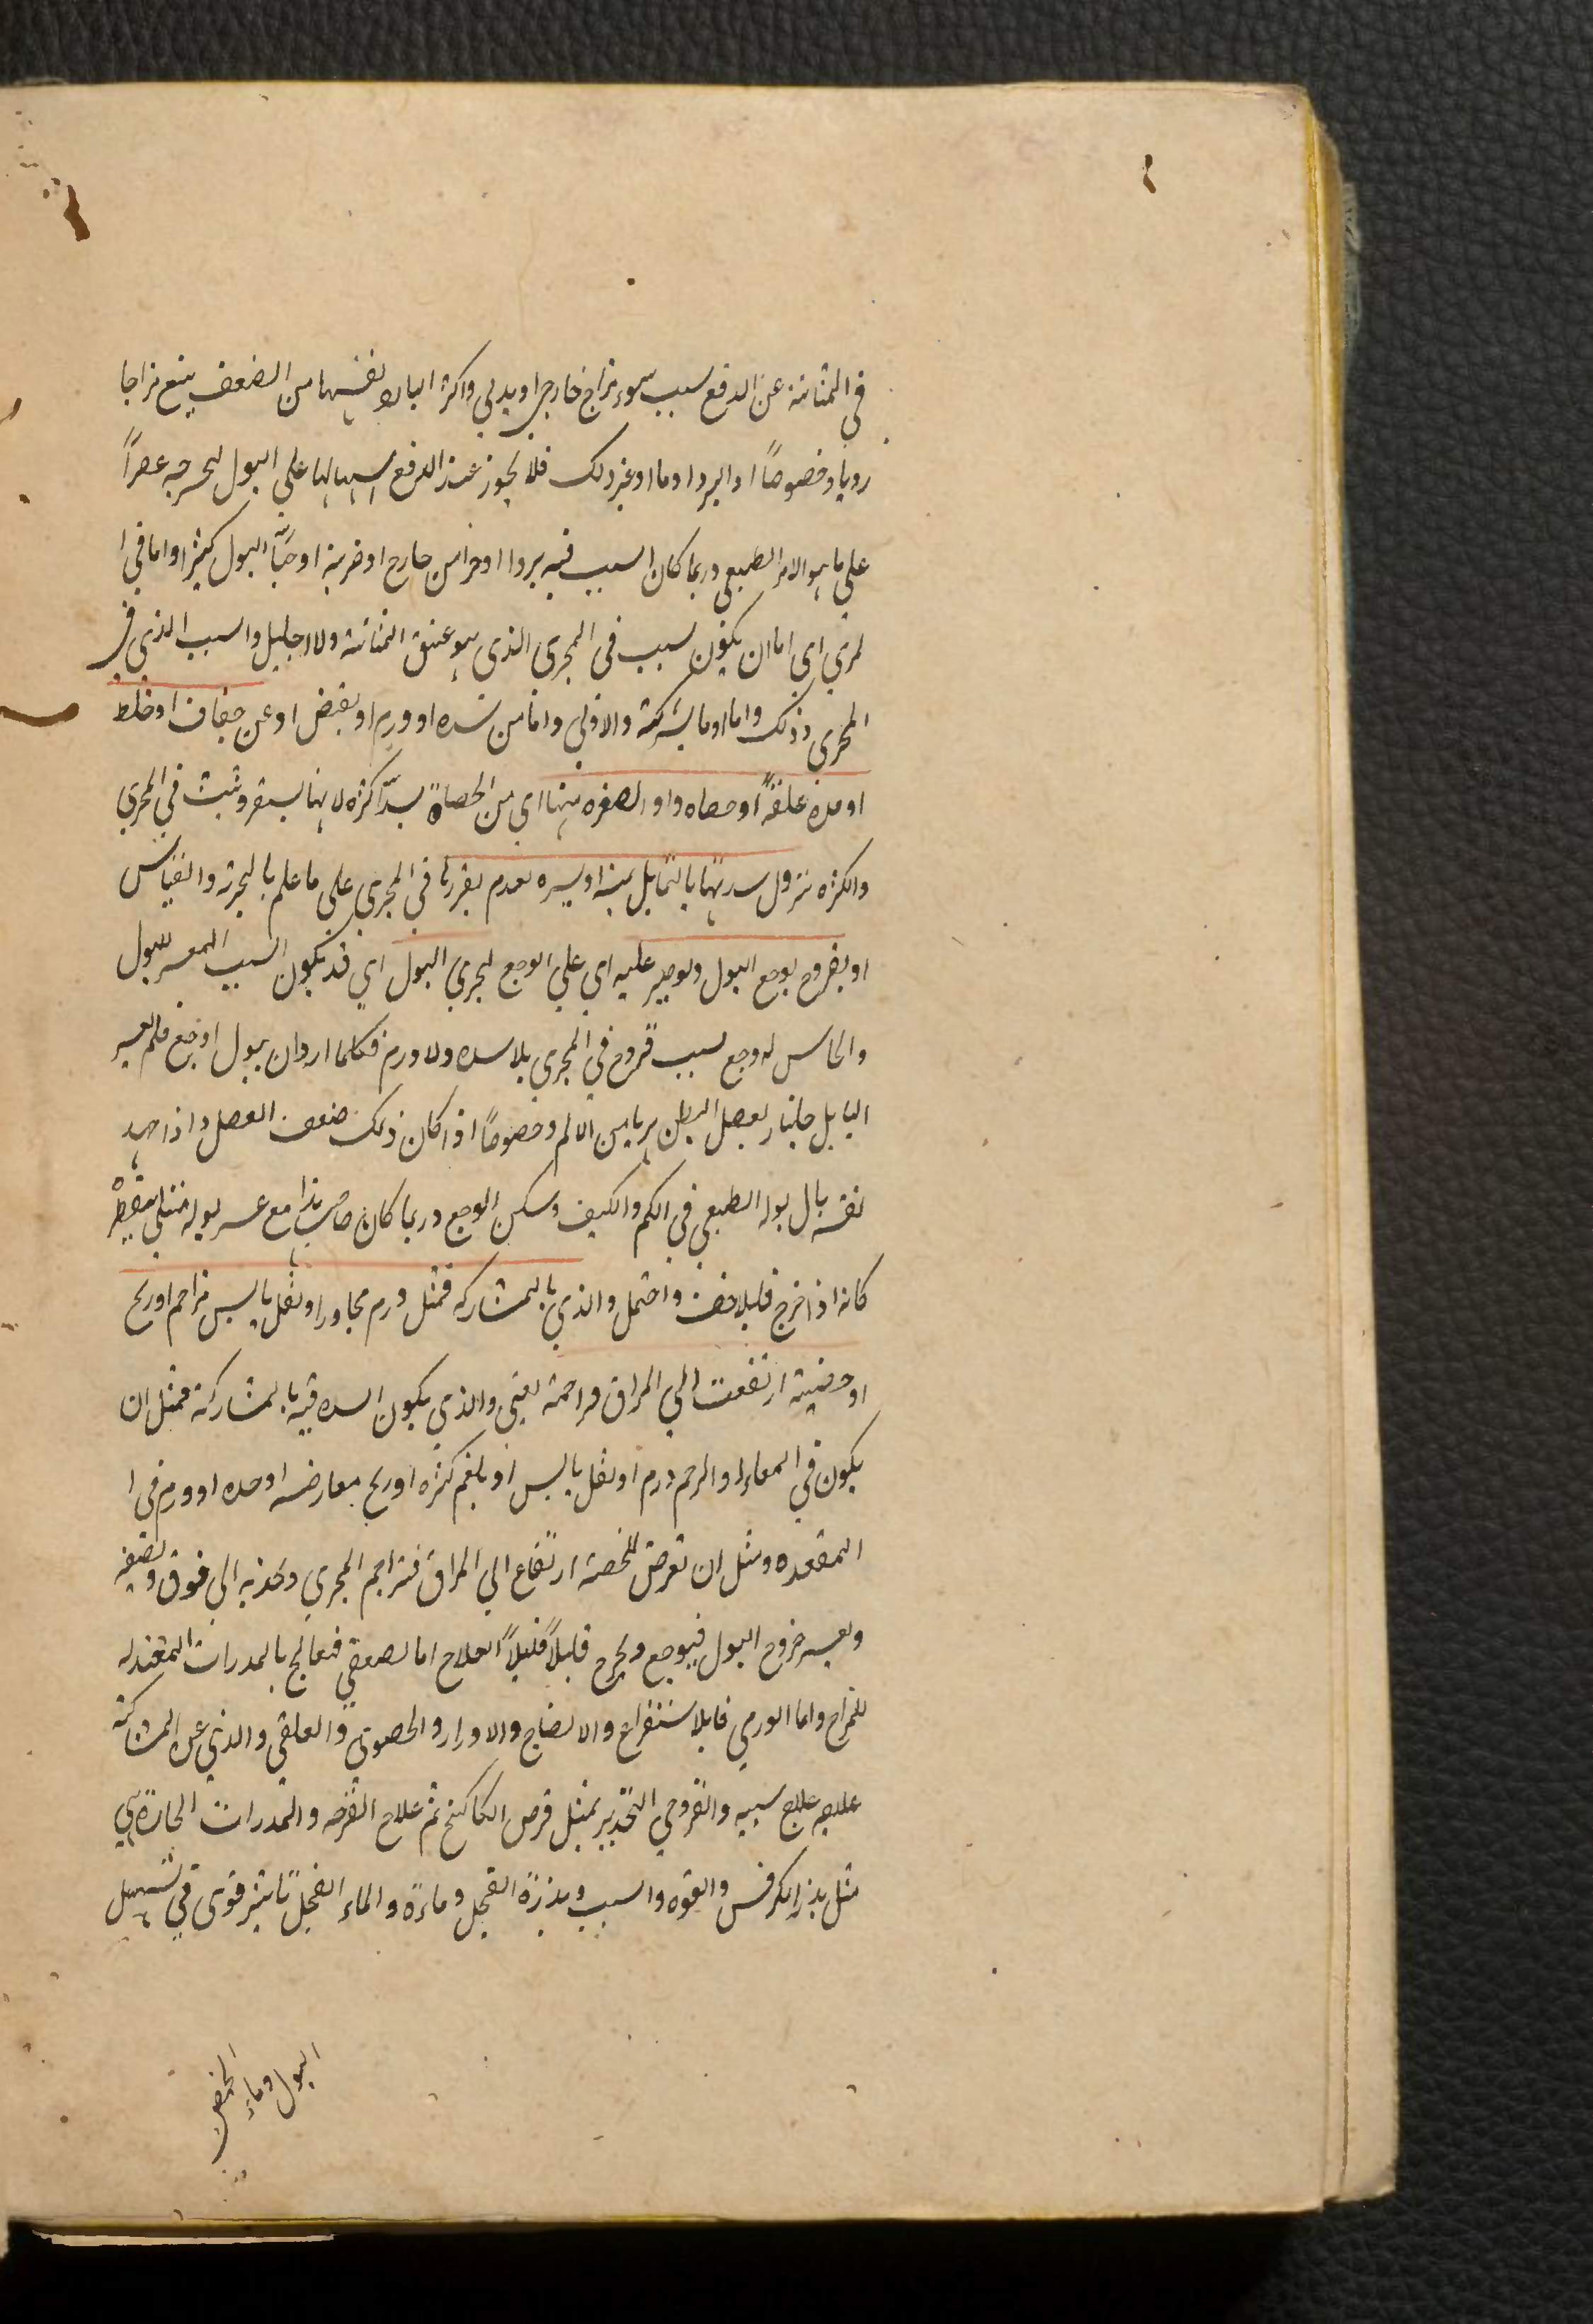 في المثانة عن الدفع سبب سوء مزاج خارجي او بدني واكثره البارد نفسها من الضعف يتبع مزاجا
رديا وخصوصًا اذا لبردا وما اوغير ذلك فلا يجوز عند الدفع اسبالها علي البول لتخرجه عصرًا
علي ما هو الامر الطبيعي وربما كان السبب فيه بردا اوحرا من خارج اوضربة اوحبًا البول كثيرا واما في ا
لمري اي اما ان يكون بسبب في المجرى الذى هو عنق المثانة ولا احليل والسبب الذي في
المجرى وذلك واما اوما بشركة والاولى واما من سده اوورم اوبقبض اوعن جفاف اوخلط
اومده علقةً اوحصاه واو الصغره منها اي من الحصاة يسدّ اكثره لانها يستقر وثبت في المجري
والكثره تنزول سدتها بالتمايل يمنه اويسره لعدم تقررها في المجري علي ما علم بالتجربة والقياس
او بقروح يوجع البول ولوصير عليه اي علي الوجع لجري البول اي قد يكون السبب المعسر للبول
والحابس له وجع بسبب قروح في المجري بلا سده ولا ورم فكلما اراد ان يبول اوجع فلم يعسر
البايل جانبا لعصل البطن هربا من الالم وخصوصًا اذا كان ذلك ضعف العصل واذا جهد
نفسه بال بوله الطبيعي في الكم والكيف وسكن الوجع وربما كان صاحب هذا مع عسر بوله مبتلي بتقطير
كانه اذا خرج قليلا خف واحتمل والذي بالمشاركه فمثل ورم مجاور اوثفل يابس مزاحم اوريح
اوخصية ارتفعت الي المراق مزاحمة يعني والذي يكون السده فيه بالمشاركة فمثل ان
يكون في المعاء او الرحم ورم اوثفل يابس او بلغم كثره اوريح معارضه اوحده اوورم في ا
المقعده ومثل ان تعرض للخصية ارتفاع الي المراق فتزاحم المجري وتجذبه الي فوق وتضيقه
ويعسر خروج البول فيوجع ويخرج قليلاً قليلاً العلاج اما لضعفي فتعالج بالمدرات المعتدله
للمزاج واما الورمي فابلاستفراغ والانضاج والادرار والحصوي والعلقي والذي عن المشاركة
علاجه علاج سببه والقروحي التخدير بمثل قرص الكاكنج ثم علاج القرحه والمدرات الحارة هي
مثل بذر الكرفس والفوه والسبب وبذرة الفجل وماءه والماء الفجل تاثير قوى في تسهيل
البول وماء الحمص